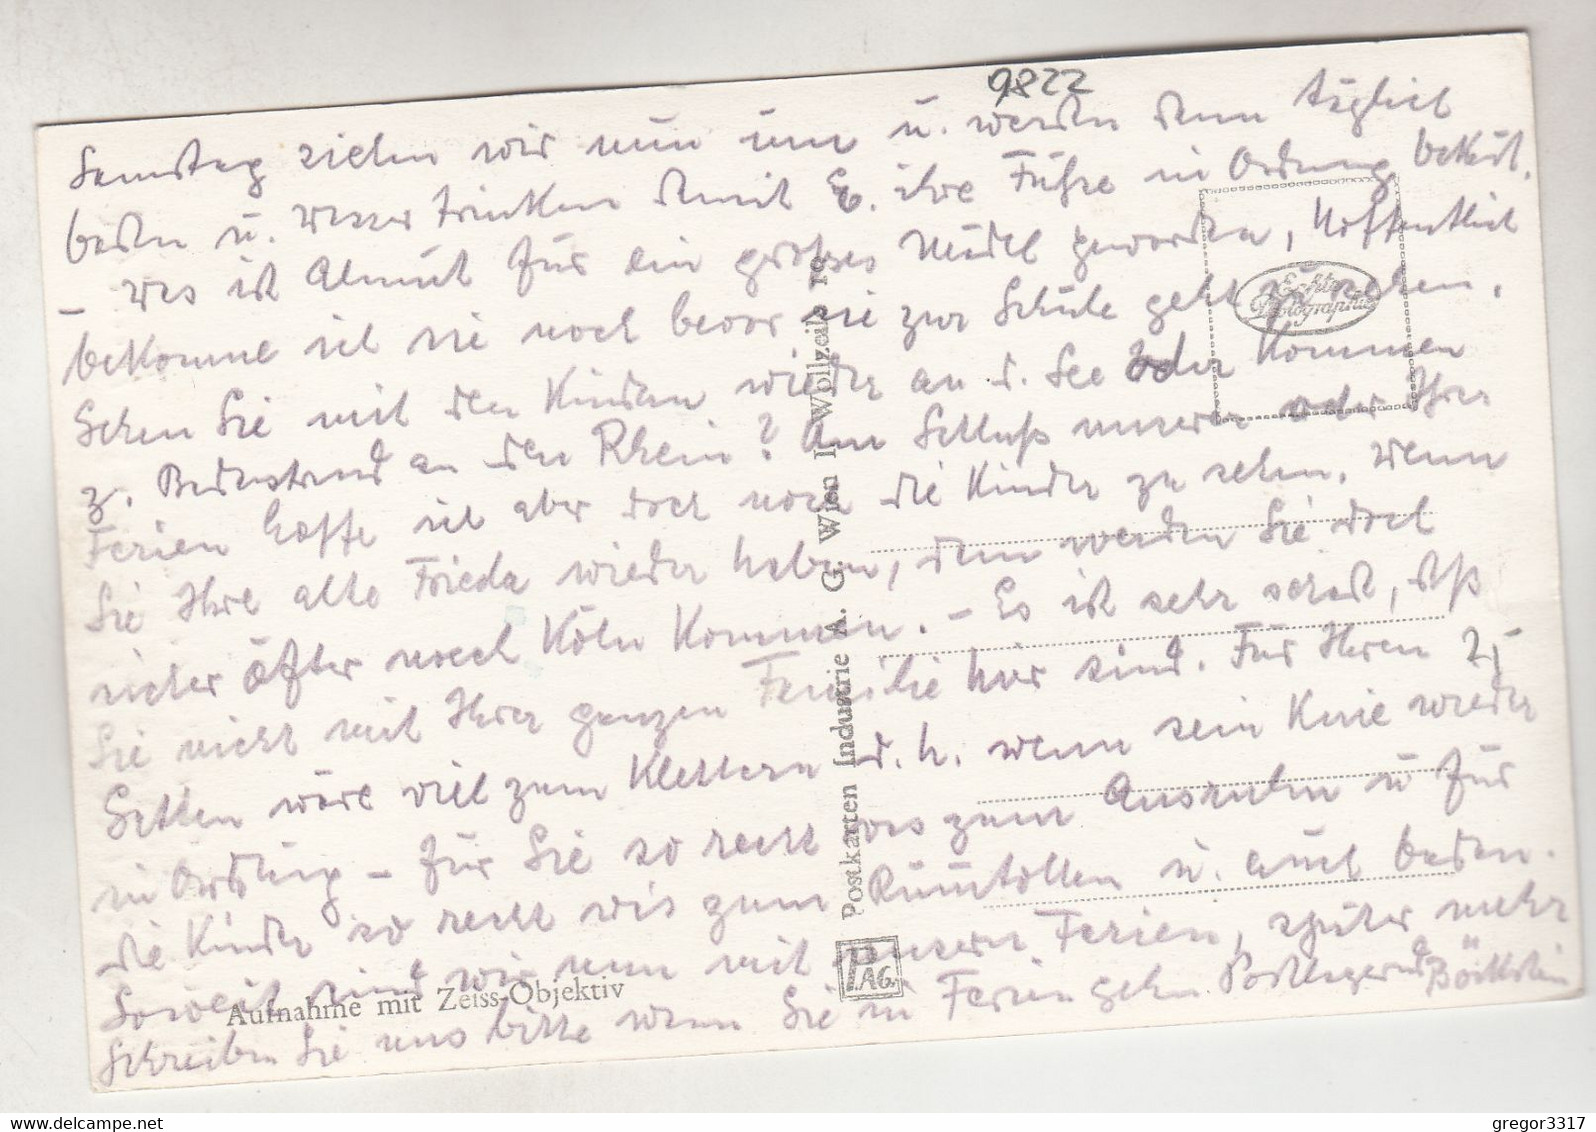 9822
Samstag ziehn wir nun um u. werden dann täglich
baden u. Wasser trinken damit E. ihre Füße in Ordnung bekäm.
– Was ist Almut für ein großes Mädel geworden, hoffentlich
bekomme ich sie noch bevor sie zur Schule geht zu sehen.
Gehen Sie mit den Kindern wieder an d. See oder kommen
z. Badestrand an den Rhein? Am Schluß unserer oder Ihrer
Ferien hoffe ich aber doch noch die Kinder zu sehen. Wenn
Sie Ihre alte Frieda wieder haben, dann werden Sie doch
sicher öfter nach Köln kommen. – Es ist sehr schad, daß
Sie nicht mit Ihrer ganzen Familie hier sind. Für Ihren
Gatten wäre viel zum Klettern d. h. wenn sein Knie wieder
in Ordnung – für Sie so recht was zum Ausruhn u für
die Kinder so recht was zum Rumtollen u. auch baden.
Soweit sind wir nun mit unsern Ferien, später mehr
Schreiben Sie uns bitte wenn Sie in Ferien gehn Postlagernd Böckstein
Echte
Photographie
Postkarten Industrie A. G. Wien I Wollzeile
PAG.
Aufnahme mit Zeiss-Objektiv
gregor3317